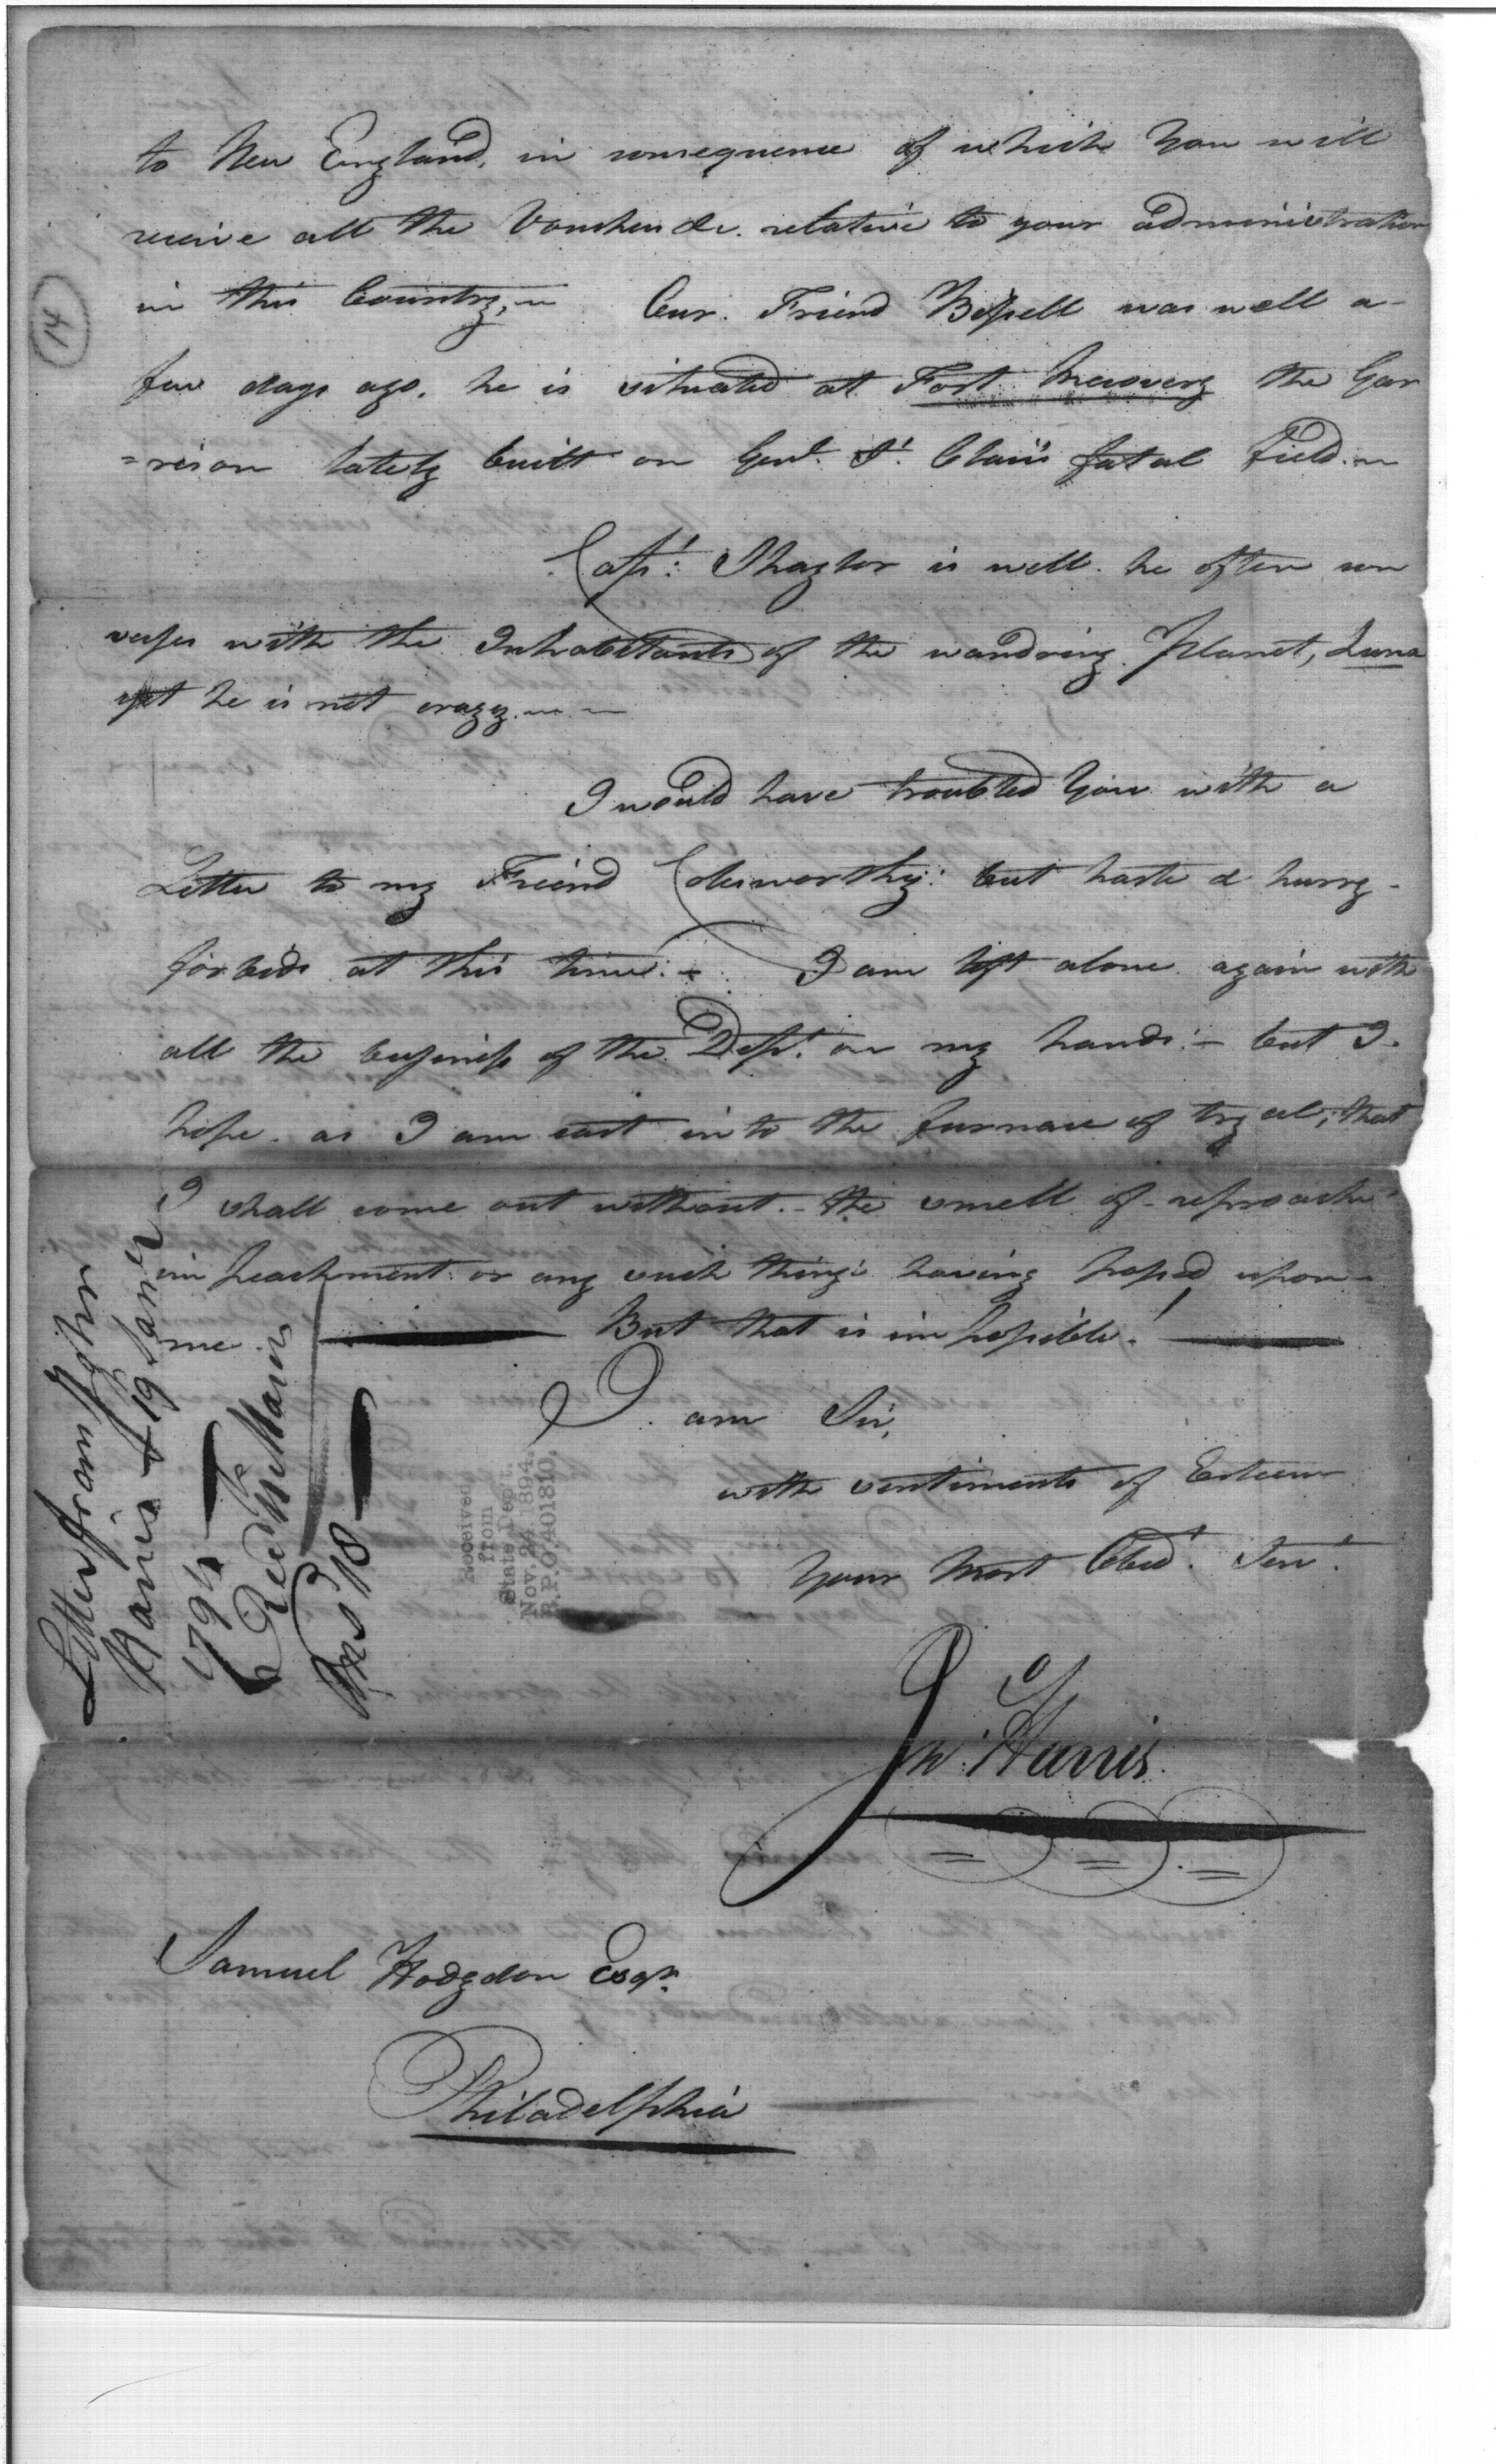 to New England, in consequence of which You will
receive all the Vouchers &c. relative to your administration
in this Country,~ Our Friend Bissell was well a-
few days ago. he is situated at Fort Recovery the Gar
=rison lately built on Genl. St. Clair's fatal field.~
Capt: Shaylor is well. he often con
verses with the Inhabitants of the wandring Planet, Luna
yet he is not crazy.~ ~
I would have troubled You with a
Letter to my Friend Colesworthy: but haste & hurry-
forbids at this time:- I am left alone again with
all the business of the Dept. on my hands:- but I.
hope. as I am cast into the furnace of tryal; that
I shall come out without.- the smell of- reproach
impeachment or any such thing having passed upon-
me. But that is impossible!
I am Sir,
with sentiments of Esteem
Your Most Obed't. Serv't.
Jn°. Harris.
Samuel Hodgdon Esqr.
Philadelphia
Letter from John
Harris 19 Janry
1794
Recd March
Ans 18
Received
from
State Dept.
Nov. 24 1894.
R.P.O. 401810.
14